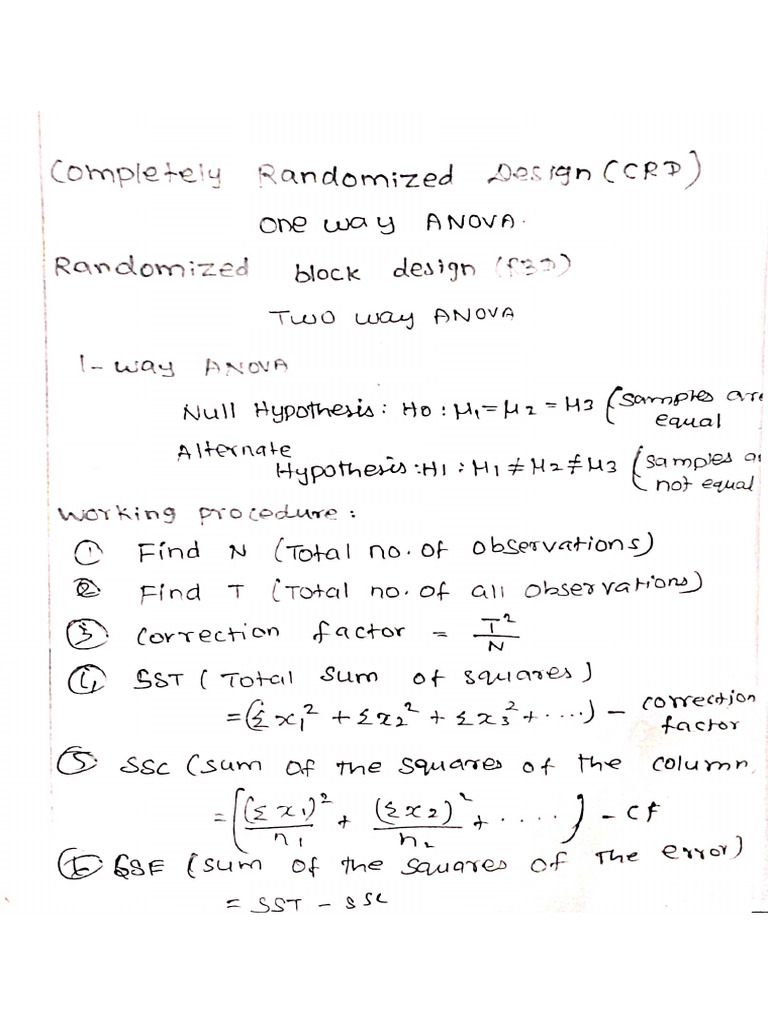 Completely Randomized Design (CRD)
One way ANOVA.
Randomized block design (RBD)
Two way ANOVA
1-way ANOVA
Null Hypothesis: H0 : μ1 = μ2 = μ3 (samples are
equal
Alternate
Hypothesis : H1 : μ1 ≠ μ2 ≠ μ3 (samples a
not equal
Working procedure :
① Find N (Total no. of observations)
② Find T (Total no. of all observations)
③ Correction factor = T²/N
④ SST (Total sum of squares)
= (Σx₁² + Σx₂² + Σx₃² + ....) - correction
factor
⑤ SSC (sum of the squares of the column
= [(Σx₁)²/n₁ + (Σx₂)²/n₂ + .....] - cf
⑥ SSE (sum of the squares of the error)
= SST - SSC